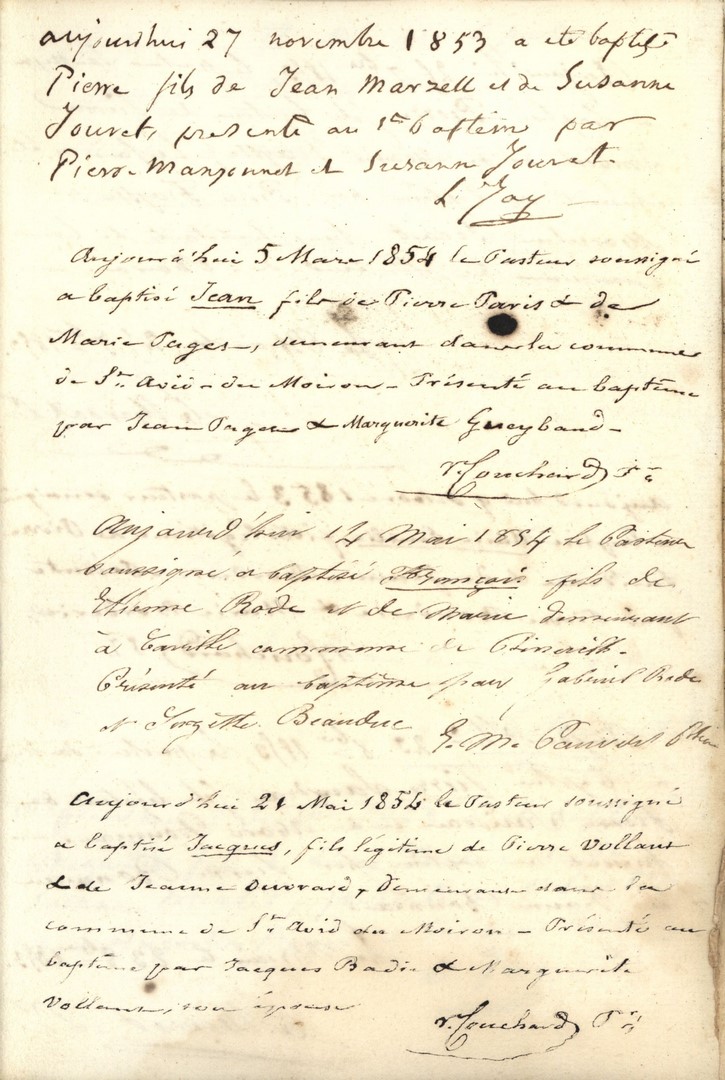 aujourdhui 27 novembre 1853 a eté baptisé
Pierre fils de Jean Marzell et de Susanne
Jouret, presenté au 1er baptem par
Pierre Manzonnet et Susann Jouret.
L. Joy
Aujourd'hui 5 Mars 1854 le Pasteur soussigné
a baptisé Jean fils de Pierre Paris & de
Marie Pages, demeurant dans la commune
de St. Avid-du Moiron - Présenté au baptême
par Jean Pages & Marguerite Gueylaud -
v. Couchard Pr.
Aujourd'hui 14 Mai 1854 le Pasteur
soussigné a baptisé François fils de
Etienne Rode et de Marie demeurant
à commune de
Présenté au baptême par Gabriel Rode
et Beauduc
E. M.
Aujourd'hui 21 Mai 1854 le Pasteur soussigné
a baptisé Jacques, fils légitime de Pierre Vollant
& de Jeanne Duvrard, Demeurant dans la
commune de St. Avid du Moiron - Présenté au
baptême par Jacques Badie & Marguerite
Vollant, son épouse
v. Couchard Pr.